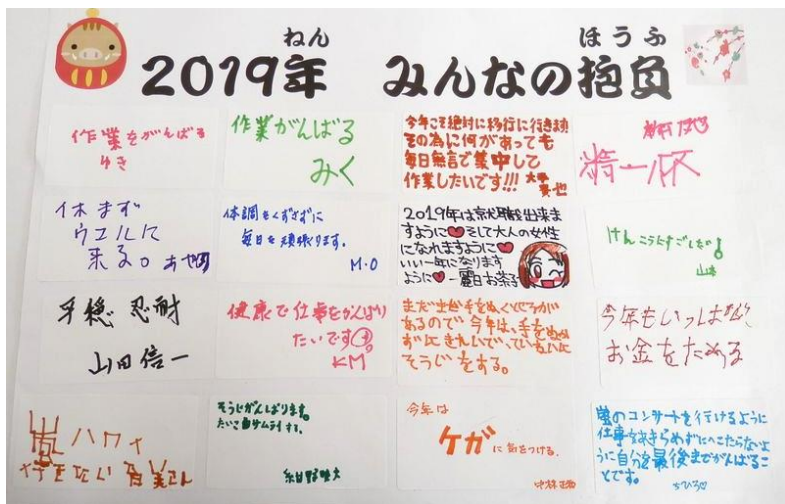 ねん ほうふ
2019年 みんなの抱負
作業をがんばる
ゆき
作業がんばる
みく
今年こそ絶対に移行に行きます
その為に何があっても
毎日無言で集中して
作業したいです!!!
精一杯
休まず
ウエルに
来る。
体調をくずさずに
毎日を頑張ります。
M.O
2019年は就職出来ま
すように♥そして大人の女性
になれますように♥
いい一年になります
ように♥
けんこうにすごしたい
忍耐
山田信一
健康で仕事をがんばり
たいです
KM
まだ
あるので今年は、手をぬか
ずにきれいで、ていねいに
そうじをする。
今年もいっぱい
お金をためる
嵐ハワイ
行きたい
そうじがんばります。
今年は
ケガに気をつける。
嵐のコンサートを行けるように
仕事をあきらめずにへこたらないよ
うに自分を最後までがんばるこ
とです。
ちひろ